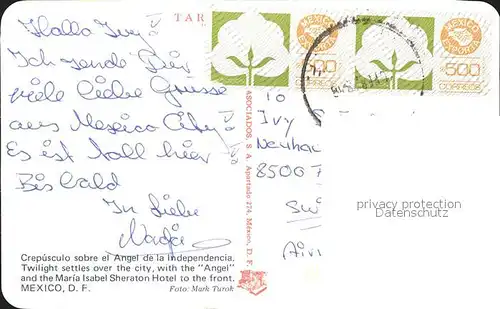 Hallo Ivy!
Ich sende Dir
viele liebe Grüsse
aus Mexico City!
Es ist toll hier
Bis bald
In Liebe
Nadja
Crepúsculo sobre el Angel de la Independencia.
Twilight settles over the city, with the "Angel"
and the María Isabel Sheraton Hotel to the front.
MEXICO, D. F. Foto: Mark Turok
TAR
ASOCIADOS, S. A. Apartado 274, México, D. F.
MEXICO
EXPORTA
500
CORREOS
MEXICO
EXPORTA
500
CORREOS
To
Ivy
Neuhau
8500 F
privacy protection
Datenschutz